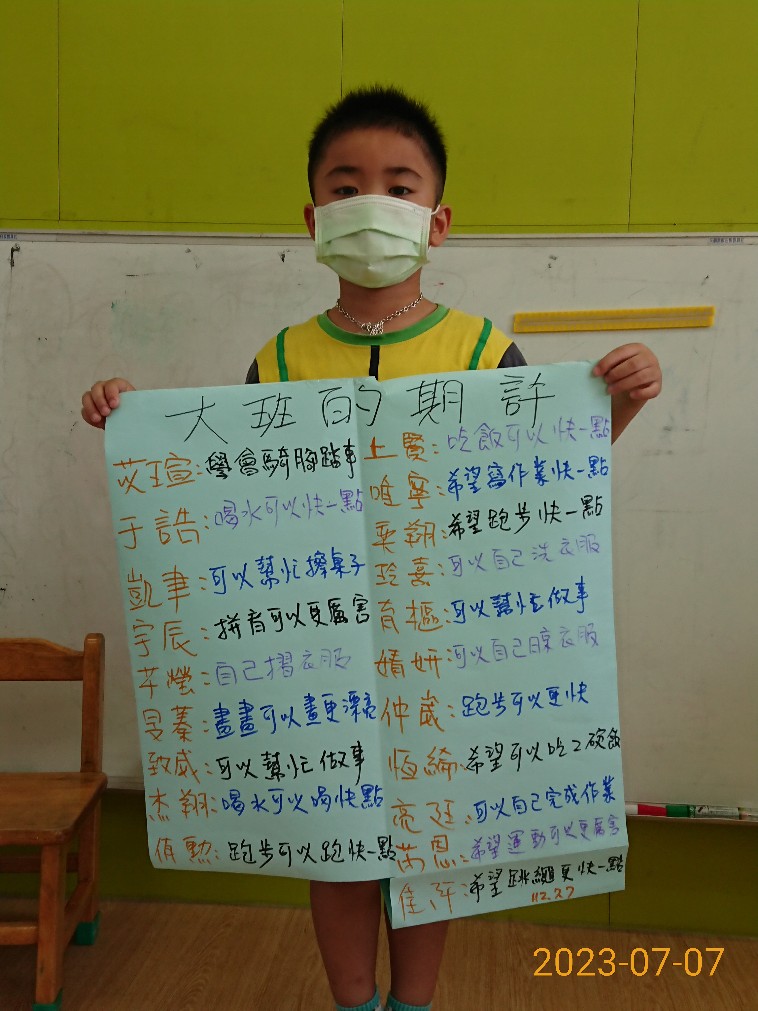 大班的期許
苡瑄:學會騎腳踏車
于誥:喝水可以快一點
凱聿:可以幫忙擦桌子
宇辰:拼音可以更厲害
芊瑩:自己摺衣服
旻蓁:畫畫可以畫更漂亮
致威:可以幫忙做事
杰翔:喝水可以喝快點
侑勳:跑步可以跑快一點
上賢:吃飯可以快一點
唯寧:希望寫作業快一點
奕翔:希望跑步快一點
玲熹:可以自己洗衣服
宥樞:可以幫忙做事
婧妍:可以自己晾衣服
仲崴:跑步可以更快
恆綸:希望可以吃2碗飯
亮廷:可以自己完成作業
芮恩:希望運動可以更厲害
:希望跳繩更快一點
112.7.7
2023-07-07